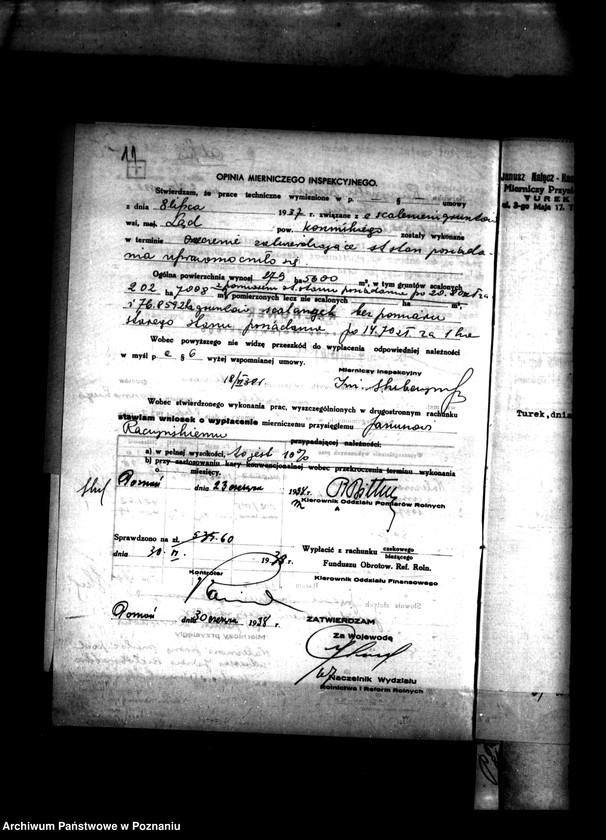 11
OPINIA MIERNICZEGO INSPEKCYJNEGO.
Stwierdzam, że prace techniczne wymienione w p. — § — umowy
z dnia 8 lipca 1937 r. związane z scaleniem gruntów
wsi, maj. Ląd pow. konińskiego zostały wykonane
w terminie
Ogólna powierzchnia wynosi 279 ha 5600 m², w tym gruntów scalonych
202 ha 7008 m² pomierzonych lecz nie scalonych — ha — m²,
i 76.8592 ha gruntów scalonych bez pomiaru
starego stanu posiadania po 14.70 zł. za 1 ha
Wobec powyższego nie widzę przeszkód do wypłacenia odpowiedniej należności
w myśl p. e § 6 wyżej wspomnianej umowy.
Mierniczy Inspekcyjny
Inż.
Wobec stwierdzonego wykonania prac, wyszczególnionych w drugostronnym rachunku
stawiam wniosek o wypłacenie mierniczemu przysięgłemu Januszowi
Raczyńskiemu przypadającej należności:
a) w pełnej wysokości, to jest 10%
b) przy zastosowaniu kary konwencjonalnej wobec przekroczenia terminu wykonania
o miesięcy.
Poznań dnia 23 czerwca 1938 r.
Kierownik Oddziału Pomiarów Rolnych
Sprawdzono na zł. 535.60
dnia 30. VI. 1938 r.
Wypłacić z rachunku czekowego
bieżącego
Funduszu Obrotow. Ref. Roln.
Kontroler
Kierownik Oddziału Finansowego
Poznań dnia 30 czerwca 1938 r.
ZATWIERDZAM
Za Wojewodę
Naczelnik Wydziału
Rolnictwa i Reform Rolnych
Janusz Nałęcz-
Mierniczy Przysię
TUREK
ul. 3-go Maja 17.
Turek, dnia
Archiwum Państwowe w Poznaniu